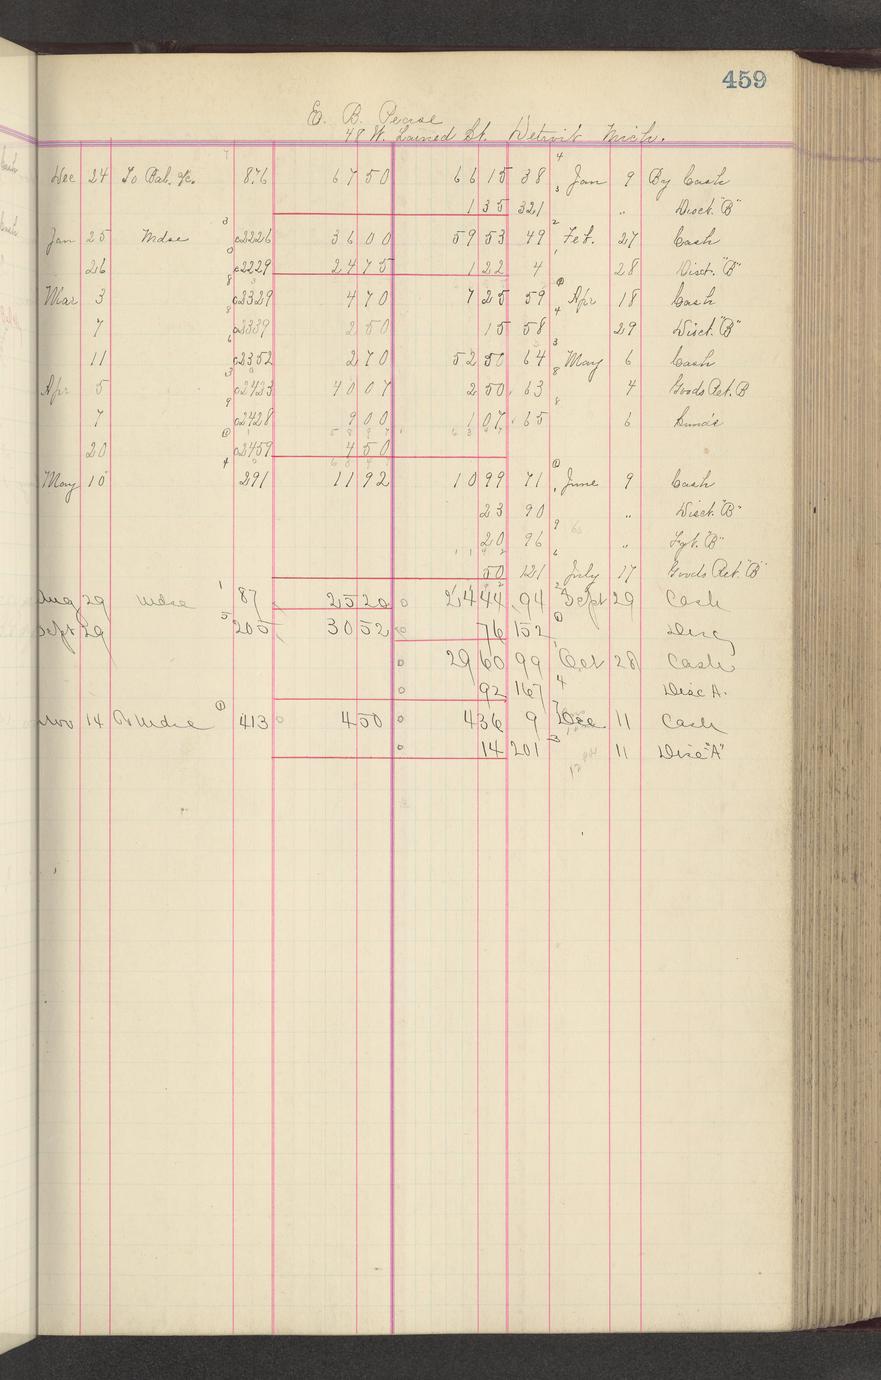 459
E. B. Pearse
48 W. Larned St. Detroit Mich.
Dec 24 To Bal. &c. 876 67 50 66 15 38 Jan 9 By Cash
1 35 321 " Disct. "B"
Jan 25 Mdse 2226 36 00 59 53 49 Feb. 27 Cash
26 2229 24 75 1 22 4 28 Disct. "B"
Mar 3 2329 4 70 7 25 59 Apr 18 Cash
7 2339 2 50 15 58 29 Disct. "B"
11 2352 2 70 52 50 64 May 6 Cash
Apr 5 2423 40 07 2 50 63 4 Goods Ret. B
7 2428 9 00 1 07 65 6 Sund's
20 2459 4 50
May 10 291 11 92 10 99 71 June 9 Cash
23 90 " Disct. "B"
20 96 " Fgt. "B"
50 121 July 17 Goods Ret. "B"
Aug 29 Mdse 87 25 20 24 44 94 Sept 29 Cash
Sept 29 205 30 52 76 152 Disc
29 60 99 Oct 28 Cash
92 167 Disc A.
Nov 14 To Mdse 413 4 50 4 36 9 Dec 11 Cash
14 201 11 Disc "A"